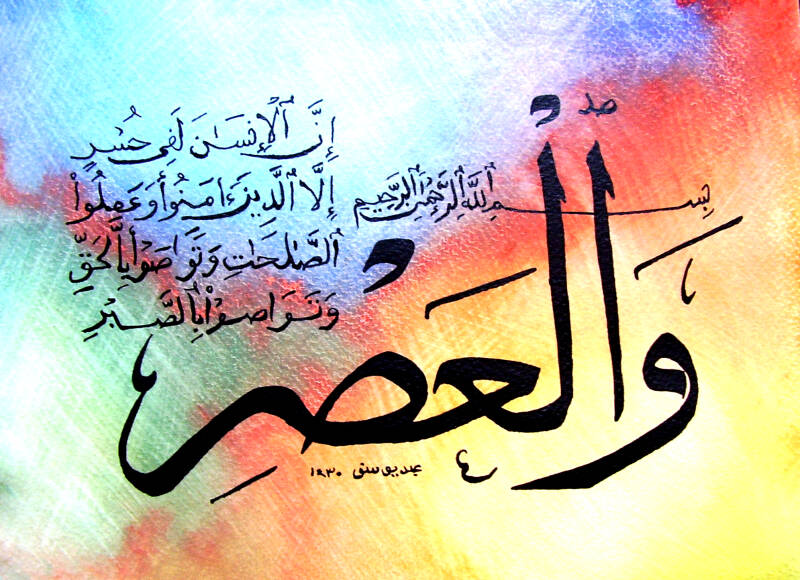 بِسْمِ ٱللَّهِ ٱلرَّحْمَٰنِ ٱلرَّحِيمِ
وَٱلْعَصْرِ
إِنَّ ٱلْإِنسَٰنَ لَفِى خُسْرٍ
إِلَّا ٱلَّذِينَ ءَامَنُوا۟ وَعَمِلُوا۟
ٱلصَّٰلِحَٰتِ وَتَوَاصَوْا۟ بِٱلْحَقِّ
وَتَوَاصَوْا۟ بِٱلصَّبْرِ